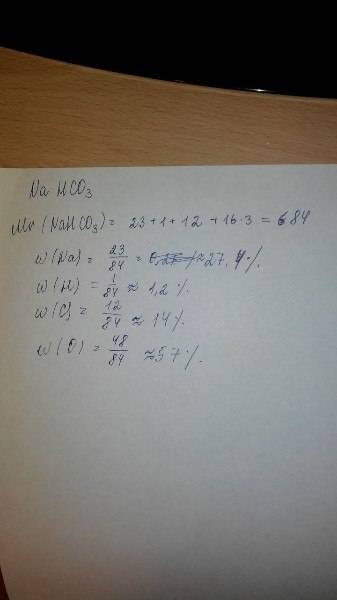 NaHCO₃
Mr(NaHCO₃) = 23+1+12+16·3 = 84
w(Na) = 23/84 = ≈27,4%
w(H) = 1/84 ≈ 1,2%
w(C) = 12/84 ≈ 14%
w(O) = 48/84 ≈57%